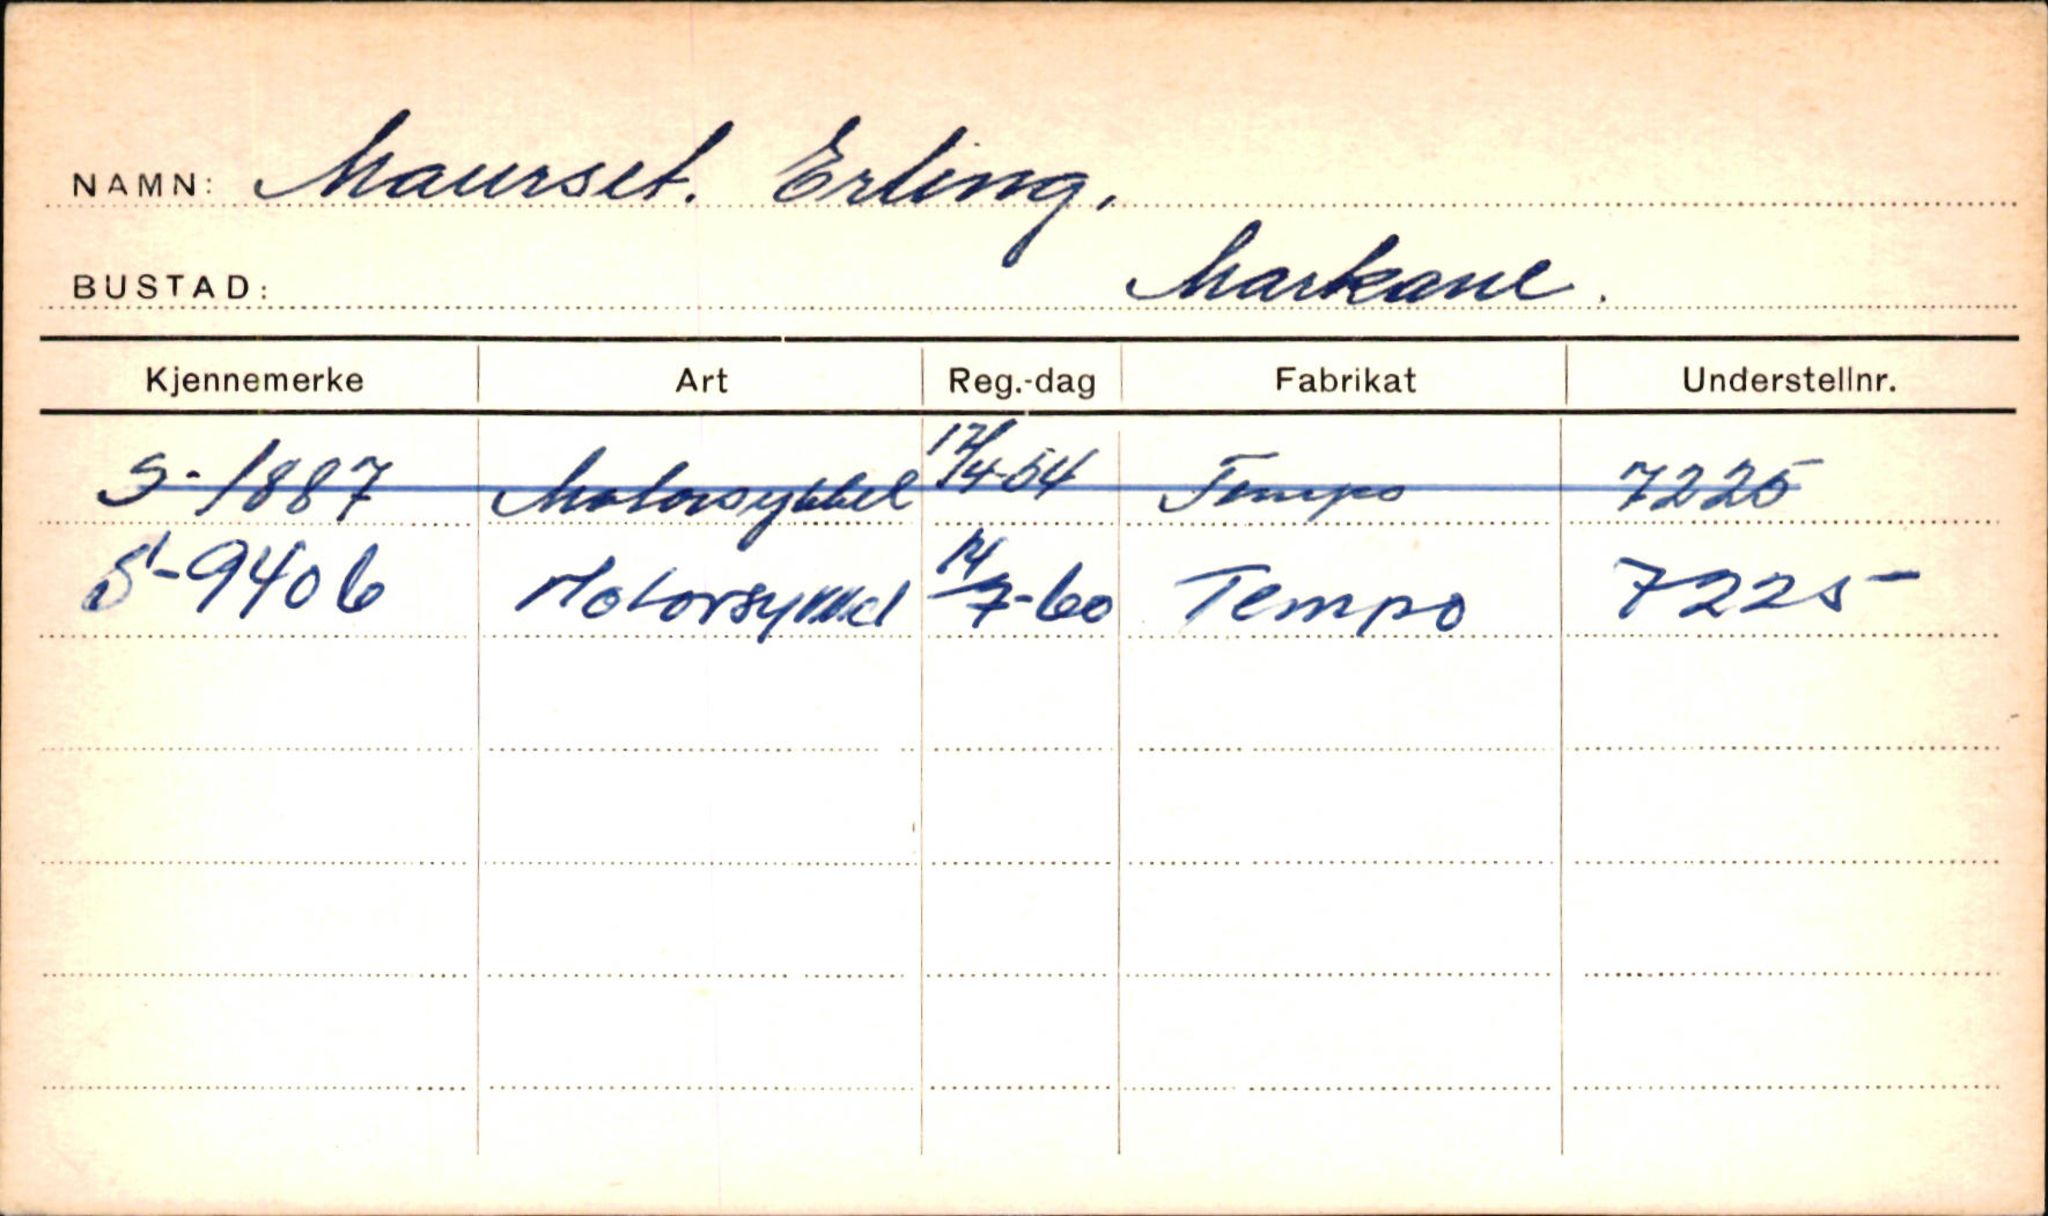 NAMN: Maurset. Erling.
BUSTAD: Markane.
Kjennemerke Art Reg.-dag Fabrikat Understellnr.
S-1887 Motorsykkel 17/4-54 Tempo 7225
S-9406 Motorsykkel 14/7-60 Tempo 7225